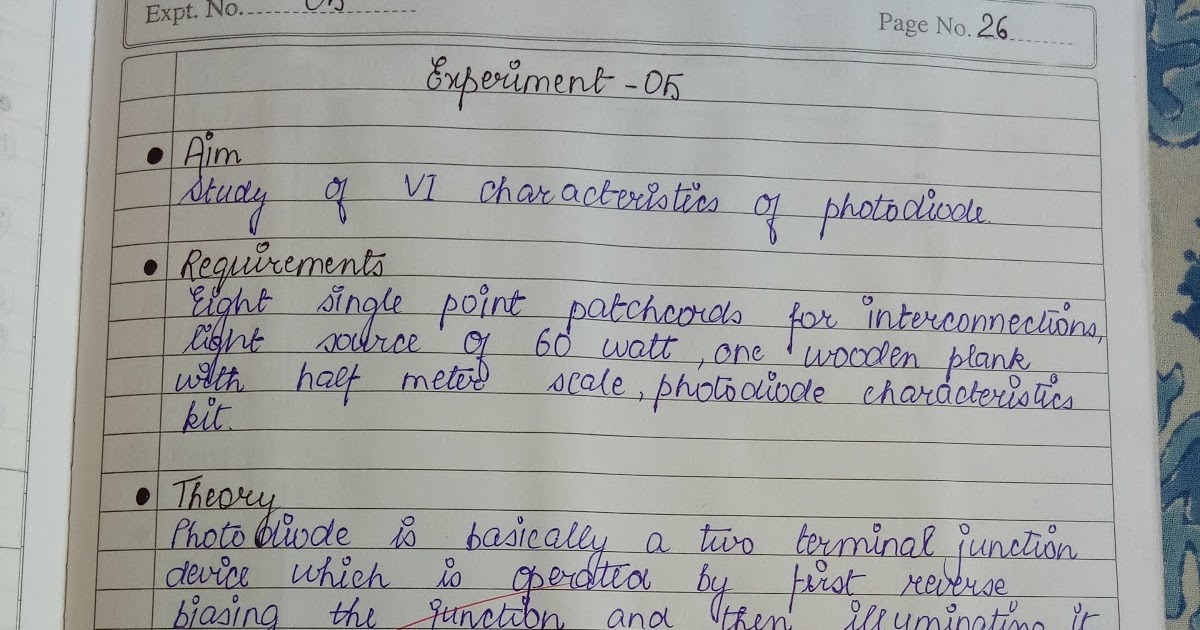 Expt. No. 05
Page No. 26
Experiment - 05
• Aim
Study of VI characteristics of photodiode.
• Requirements
Eight single point patchcords for interconnections,
light source of 60 watt, one wooden plank
with half meter scale, photodiode characteristics
kit.
• Theory
Photodiode is basically a two terminal junction
device which is operated by first reverse
biasing the junction and then illuminating it